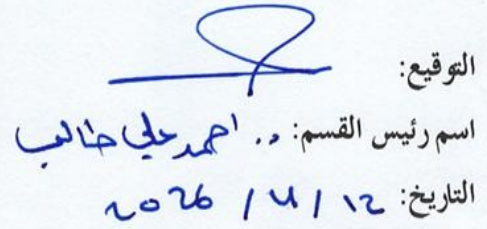 التوقيع:
اسم رئيس القسم: د. احمد علي طالب
التاريخ: ١٢ / ٧ / ٢٠26